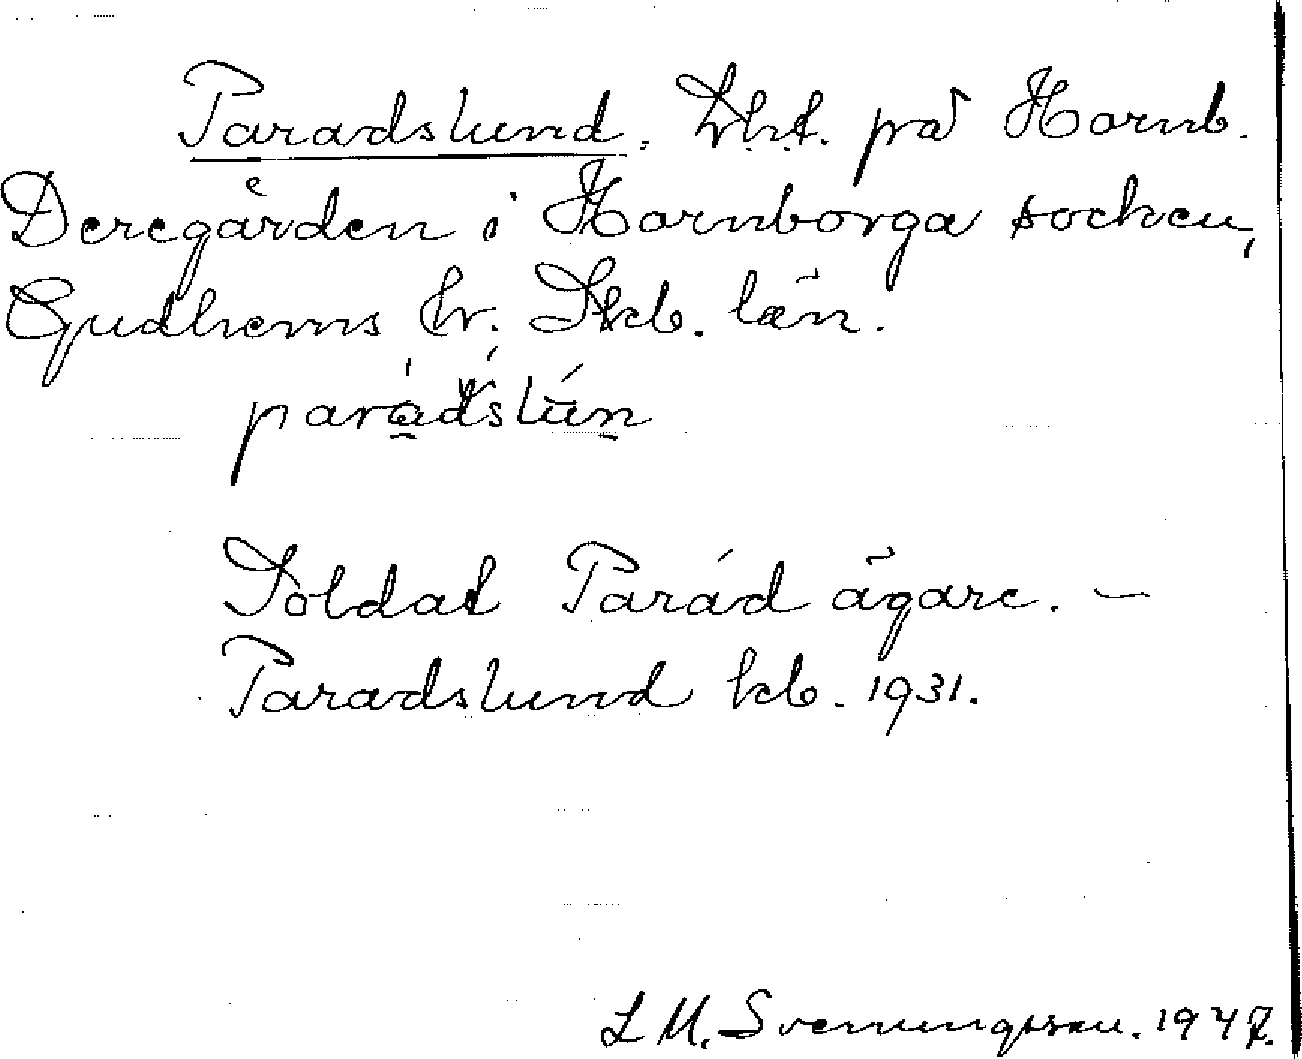 Paradslund. Lht. på Hornb.
Deregården i Hornborga socken,
Gudhems hr. Skb. län.
parádslún
Soldat Parád ägare. —
Paradslund kb. 1931.
L M. Svenungsson. 1947.